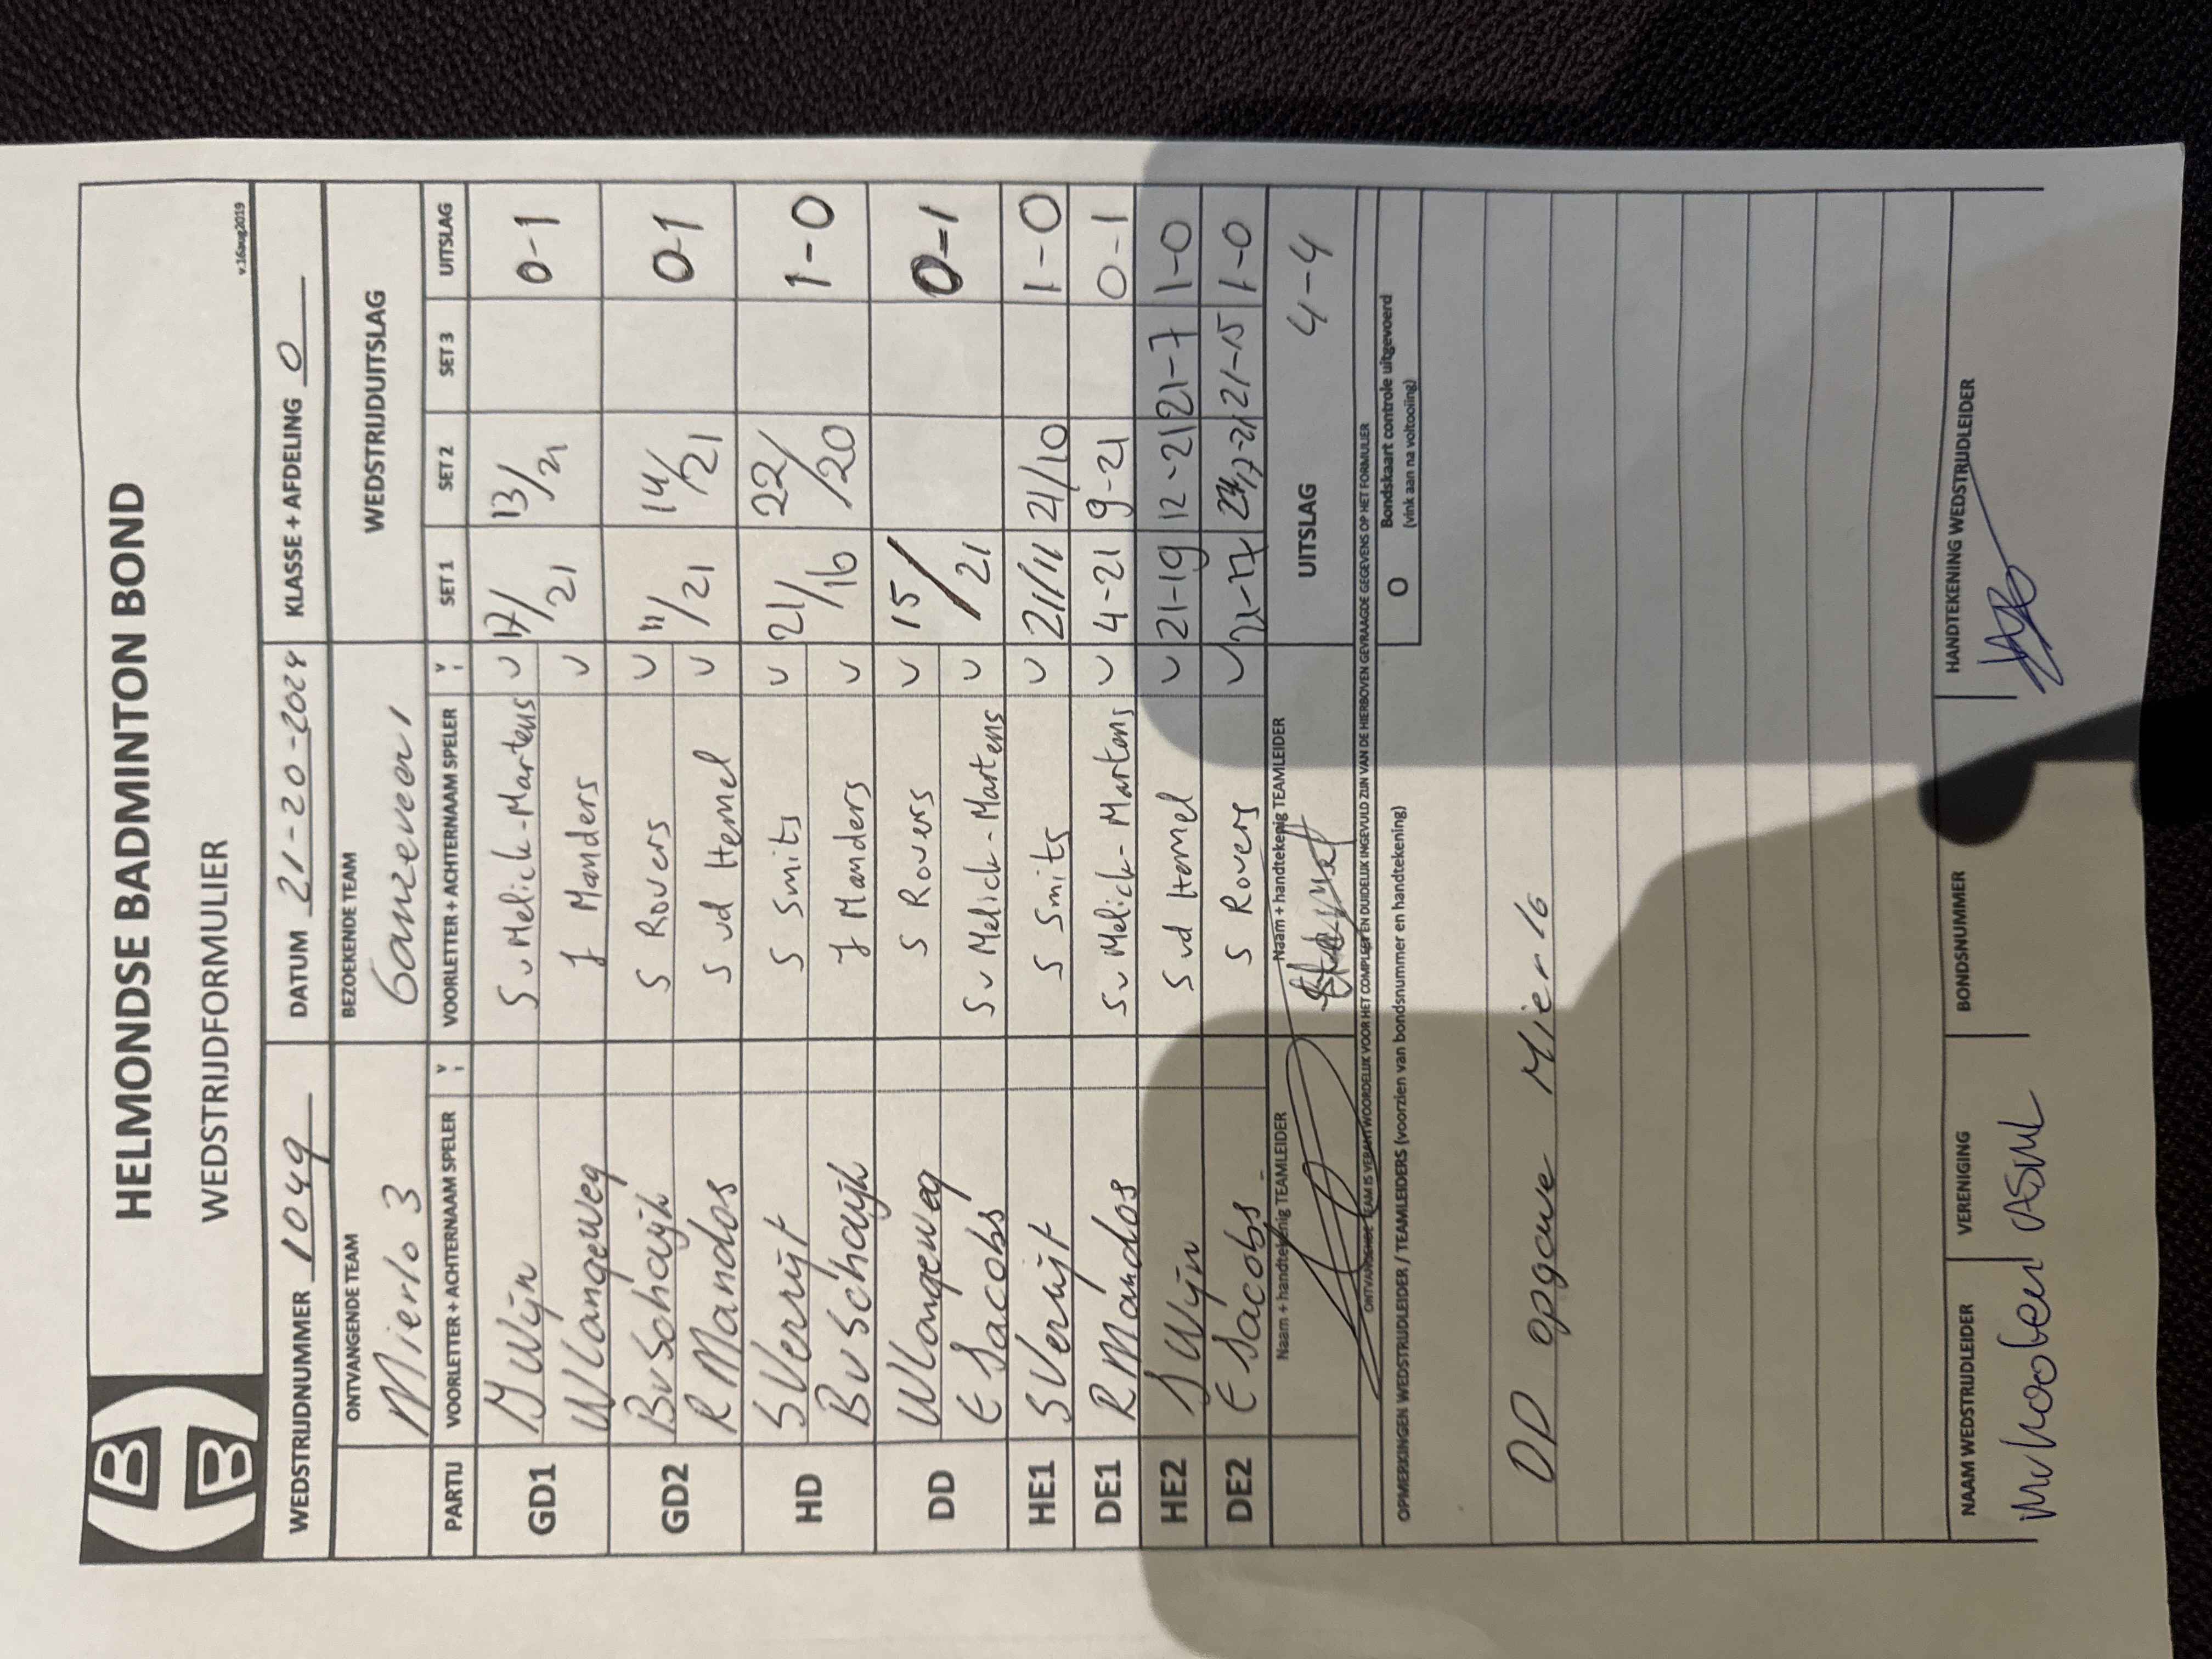 HELMONDSE BADMINTON BOND
WEDSTRIJDFORMULIER
v.16aug2019
WEDSTRIJDNUMMER 1049 DATUM 21-20-2024 KLASSE + AFDELING 0
ONTVANGENDE TEAM BEZOEKENDE TEAM WEDSTRIJDUITSLAG
Mierlo 3 Gamzeveen 1
PARTIJ VOORLETTER + ACHTERNAAM SPELER VOORLETTER + ACHTERNAAM SPELER SET 1 SET 2 SET 3 UITSLAG
GD1 J Wijn S v Melick-Martens 17/21 13/21 0-1
W Langeweg J Manders
GD2 B v Schaijk S Rovers 11/21 14/21 0-1
R Mandos S vd Hemel
HD S Verrijt S Smits 21/16 22/20 1-0
B v Schaijk J Manders
DD W Langeweg S Rovers 15/21 0-1
E Jacobs S v Melick-Martens
HE1 S Verrijt S Smits 21/11 21/10 1-0
DE1 R Mandos S v Melick-Martens 4-21 9-21 0-1
HE2 J Wijn S vd Hemel 21-19 12-21 21-7 1-0
DE2 E Jacobs S Rovers 21-17 17-21 21-15 1-0
Naam + handtekenig TEAMLEIDER Naam + handtekenig TEAMLEIDER UITSLAG 4-4
ONTVANGENDE TEAM IS VERANTWOORDELIJK VOOR HET COMPLEET EN DUIDELIJK INGEVULD ZIJN VAN DE HIERBOVEN GEVRAAGDE GEGEVENS OP HET FORMULIER
OPMERKINGEN WEDSTRIJDLEIDER / TEAMLEIDERS (voorzien van bondsnummer en handtekening)
O Bondskaart controle uitgevoerd
(vink aan na voltooiing)
DD opgave Mierlo
NAAM WEDSTRIJDLEIDER VERENIGING BONDSNUMMER HANDTEKENING WEDSTRIJDLEIDER